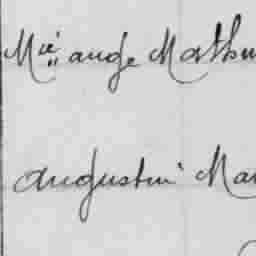 Mie ange Mathu
Augustin Mar